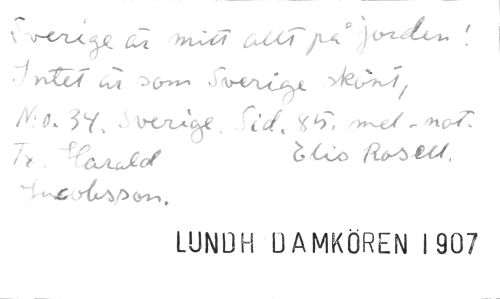 Sverige är mitt allt på jorden!
Intet är som Sverige skönt,
N:o. 34. Sverige. Sid. 85. mel-not.
Tx. Harald Elis Rosell.
Jacobsson.
LUNDH DAMKÖREN 1907